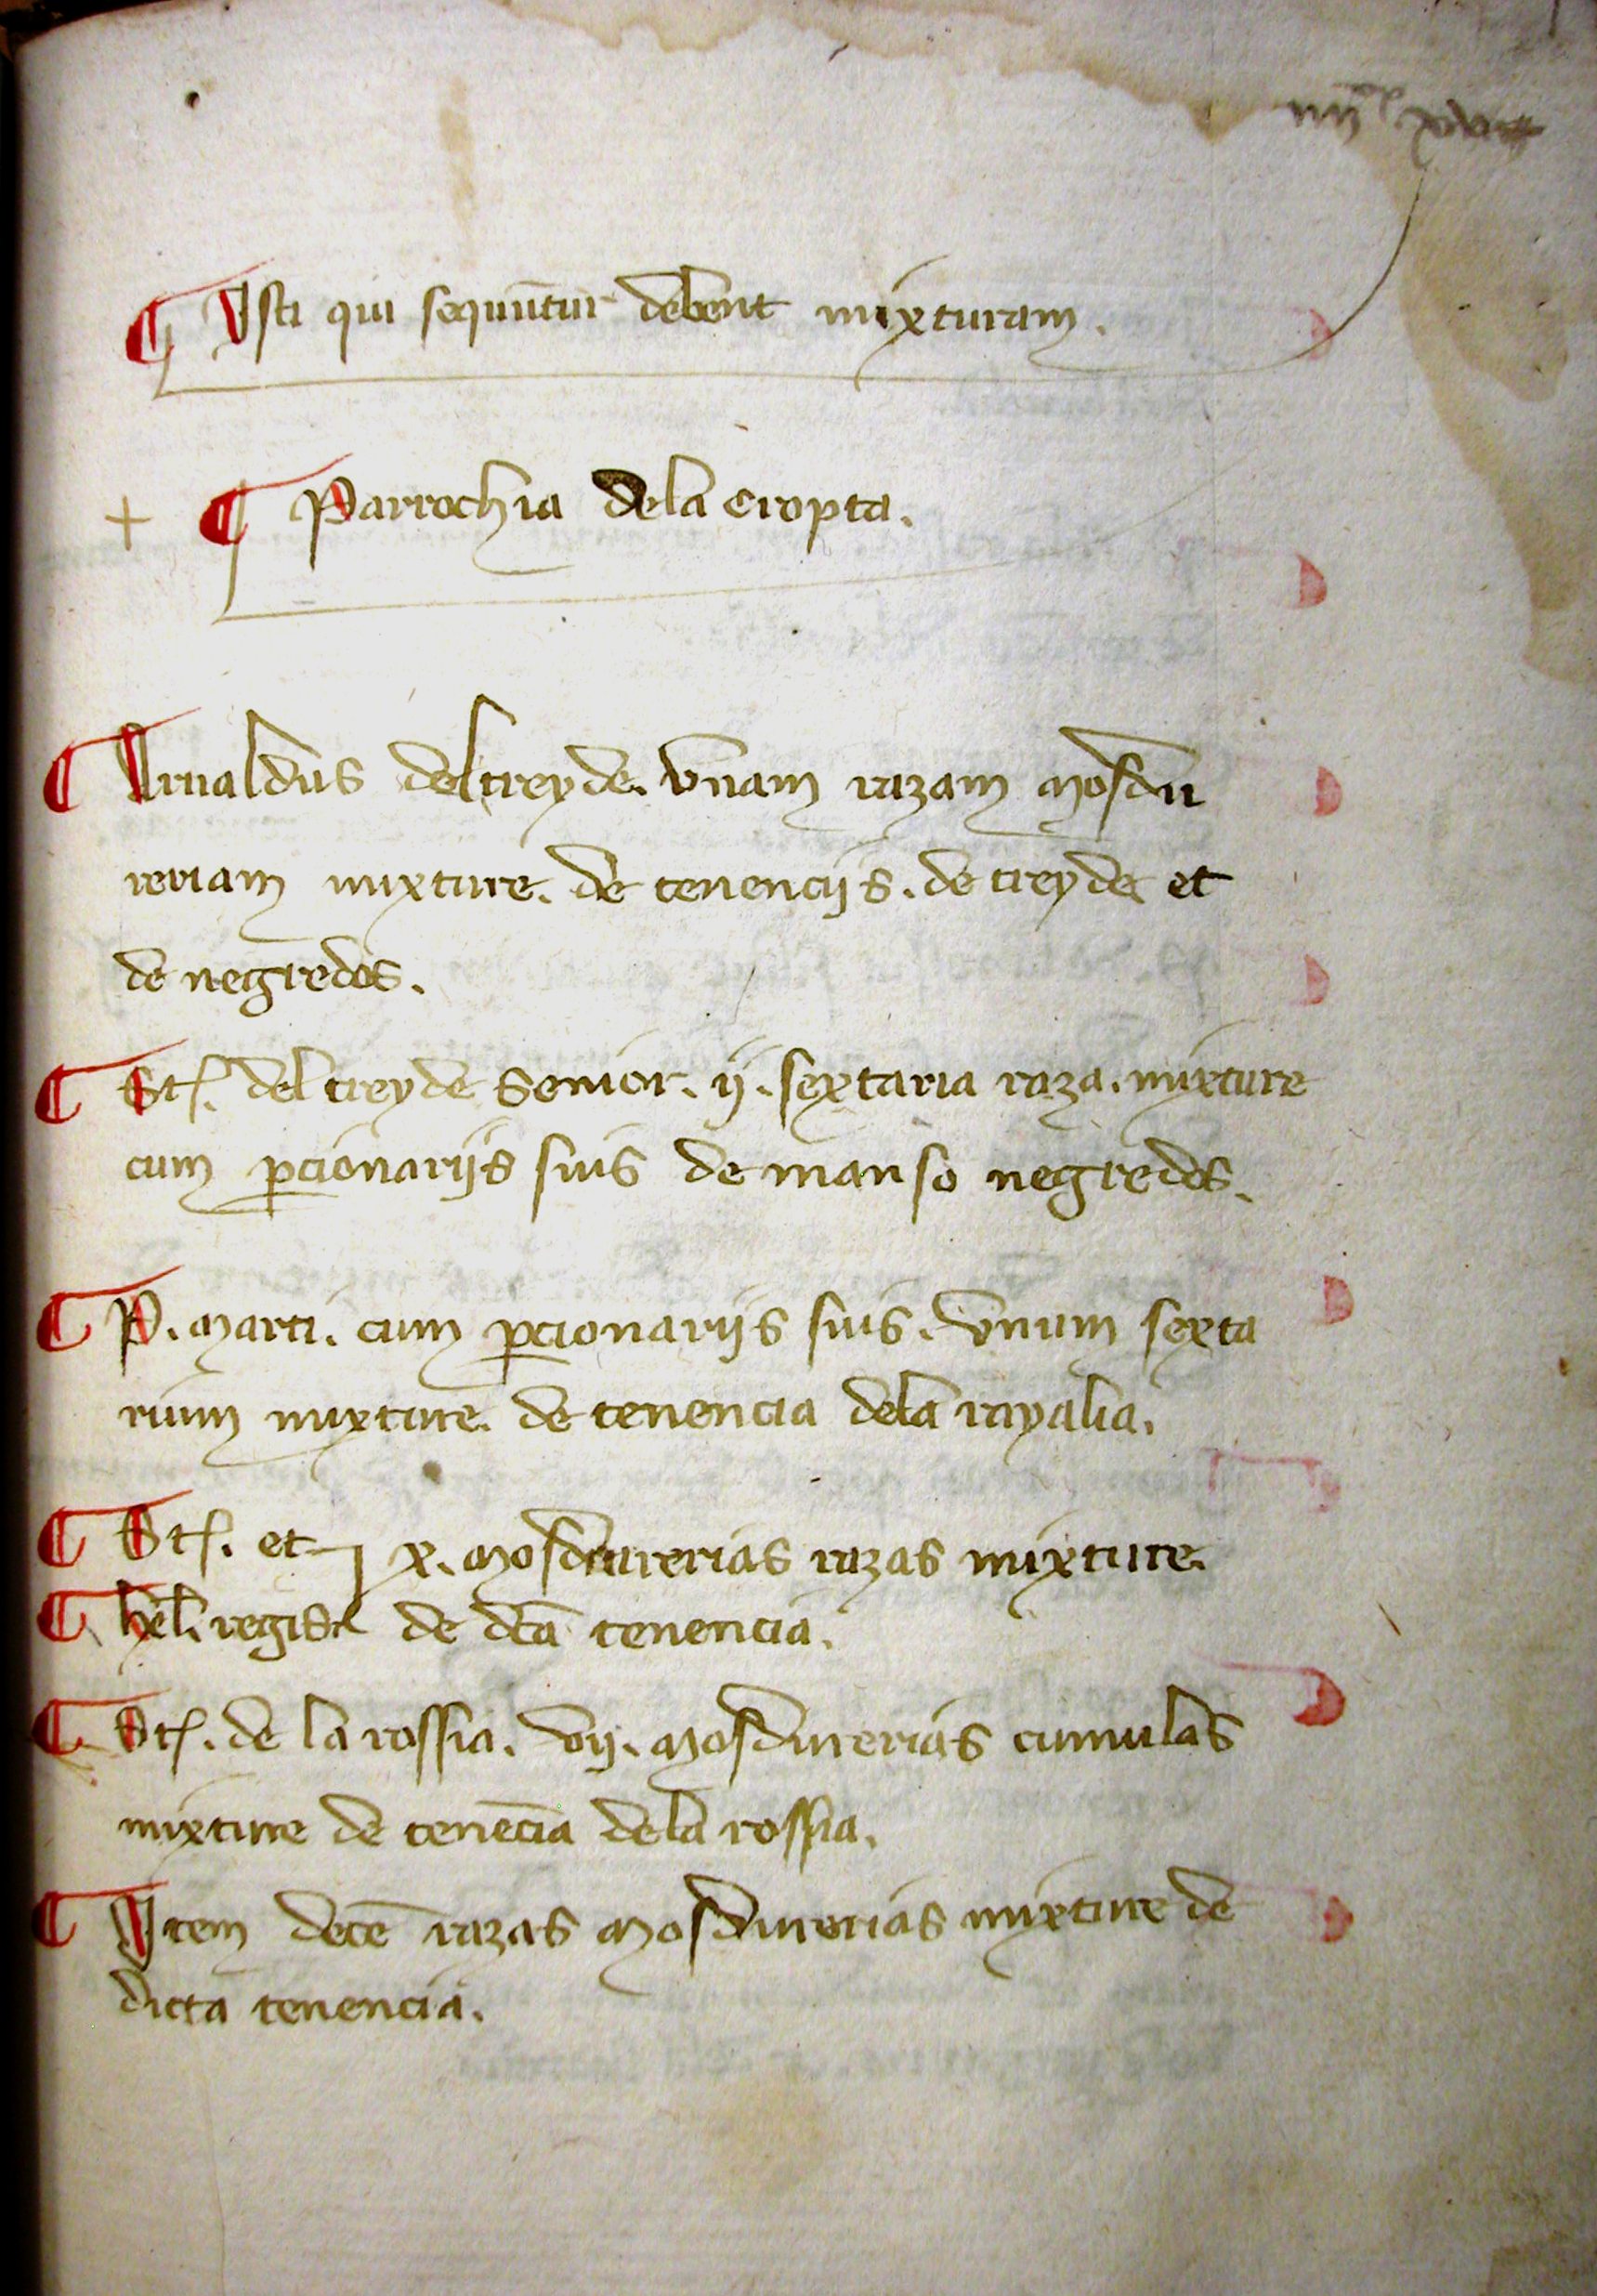 ¶ Isti qui sequūtur debent mixturam.
+ ¶ Parrochia dela cropta.
¶ Arnaldus del treyde. vnam razam mosdu
reriam mixture. de tenencijs. de treyde et
de negredos.
¶ St. del treyde senior. ij. sextaria raza. mixture
cum ꝑcionarijs suis de manso negredos.
¶ P. marti. cum ꝑcionarijs suis. vnum sexta
rium mixture. de tenencia dela rayalia.
¶ St. et x. mosdurerias razas mixture.
¶ hel. regist de dc̄a tenencia.
¶ St. de la rossia. vij. mosdurerias cumulas
mixture de tenēcia dela rossia.
¶ Item decē razas mosdurerias mixture de
dicta tenencia.